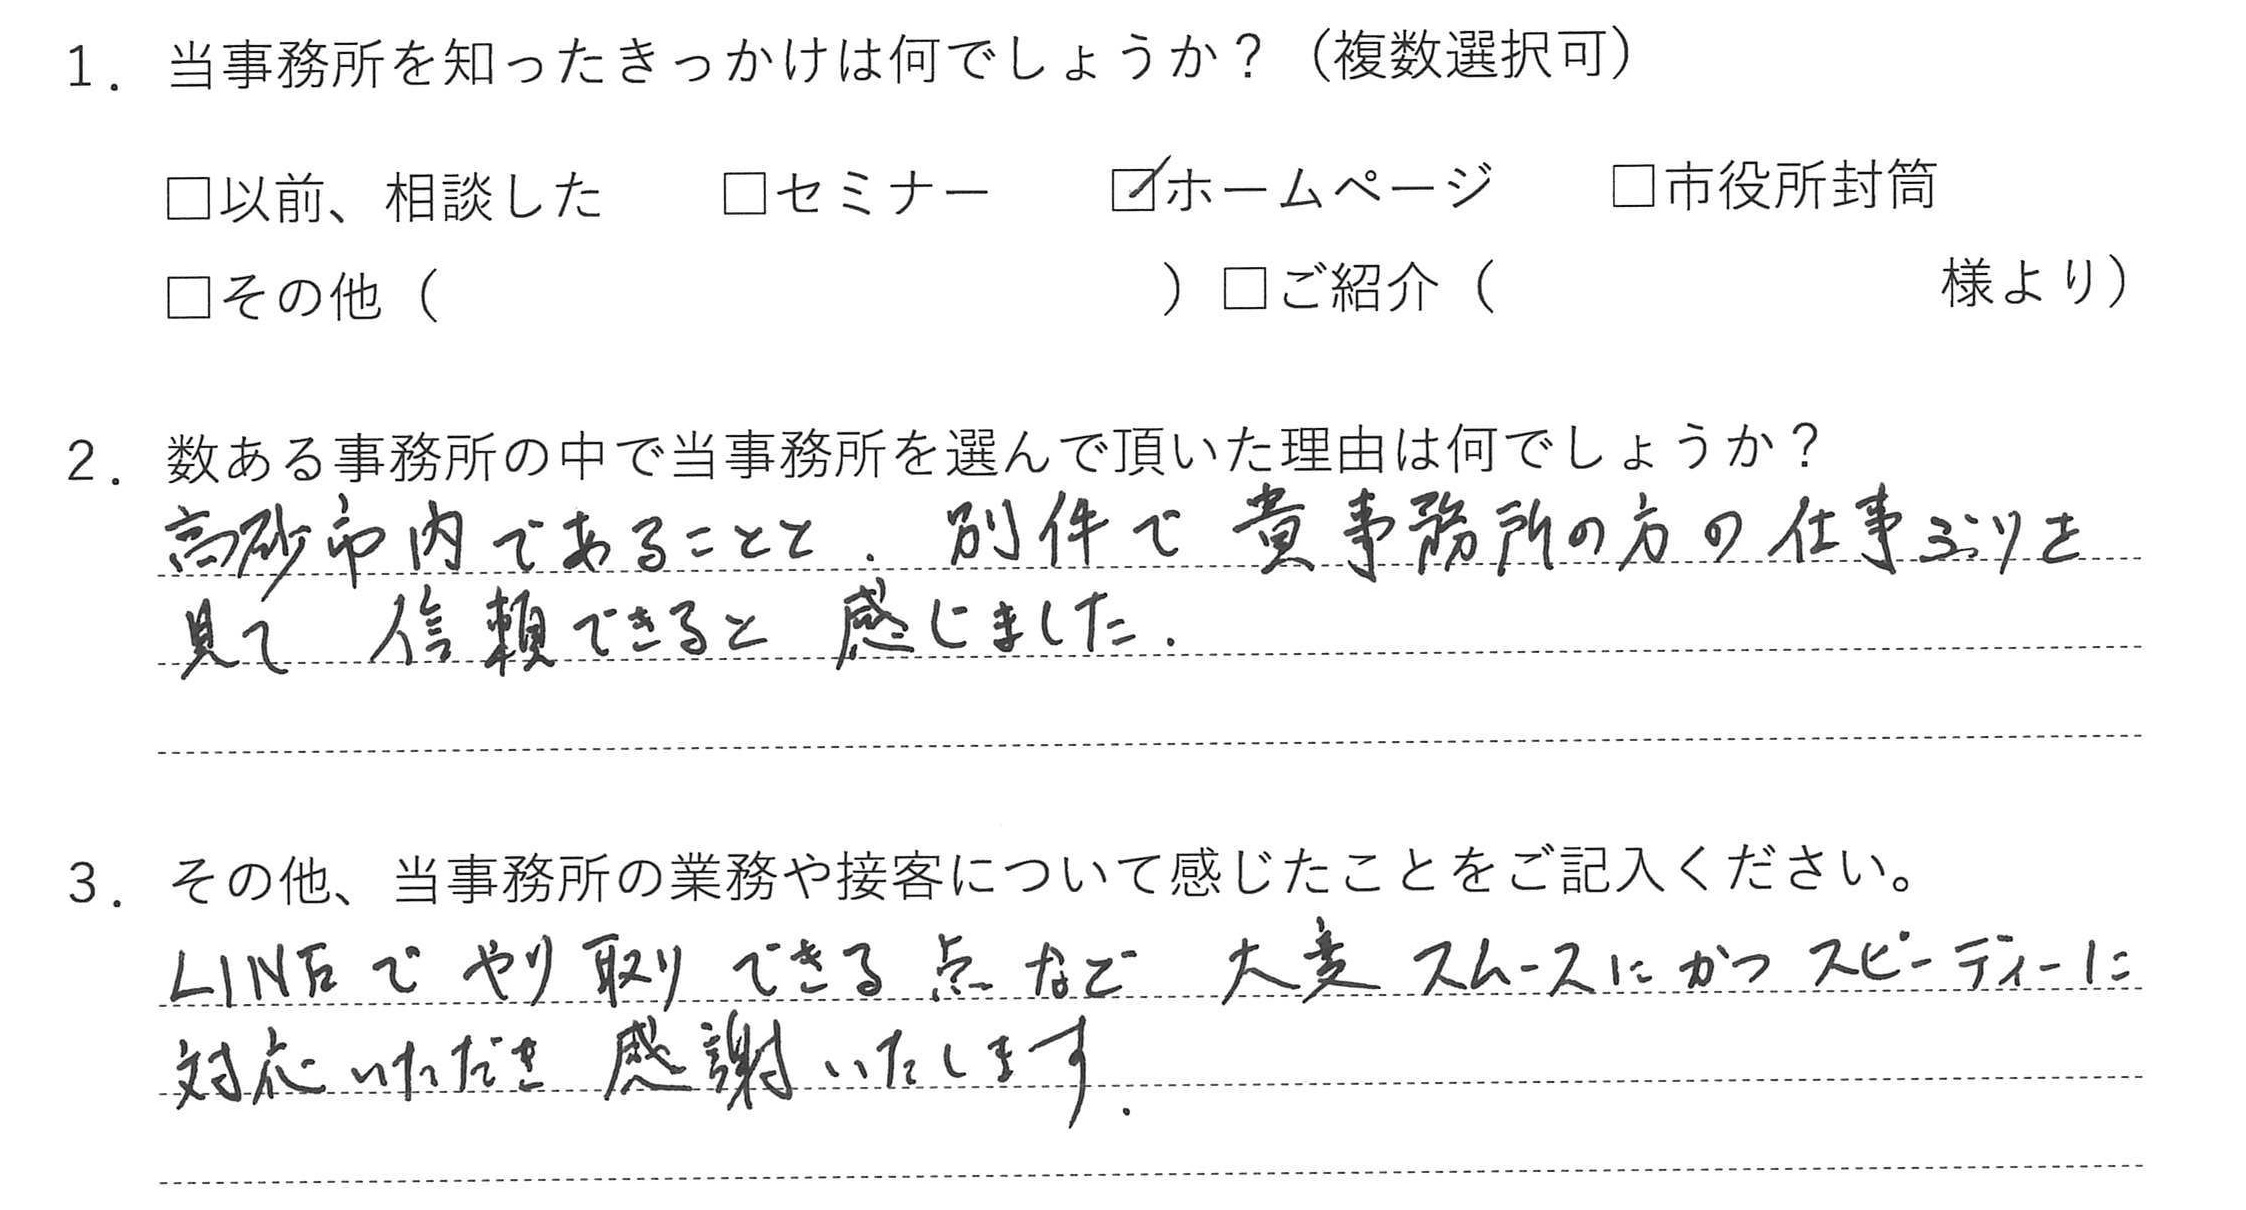 1．当事務所を知ったきっかけは何でしょうか？（複数選択可）
□以前、相談した　□セミナー　☑ホームページ　□市役所封筒
□その他（　　　）□ご紹介（　　　様より）
2．数ある事務所の中で当事務所を選んで頂いた理由は何でしょうか？
高砂市内であることと、別件で貴事務所の方の仕事ぶりを
見て 信頼できると 感じました.
3．その他、当事務所の業務や接客について感じたことをご記入ください。
LINEで やり取りできる点など 大変 スムースに かつ スピーディーに
対応いただき 感謝いたします.